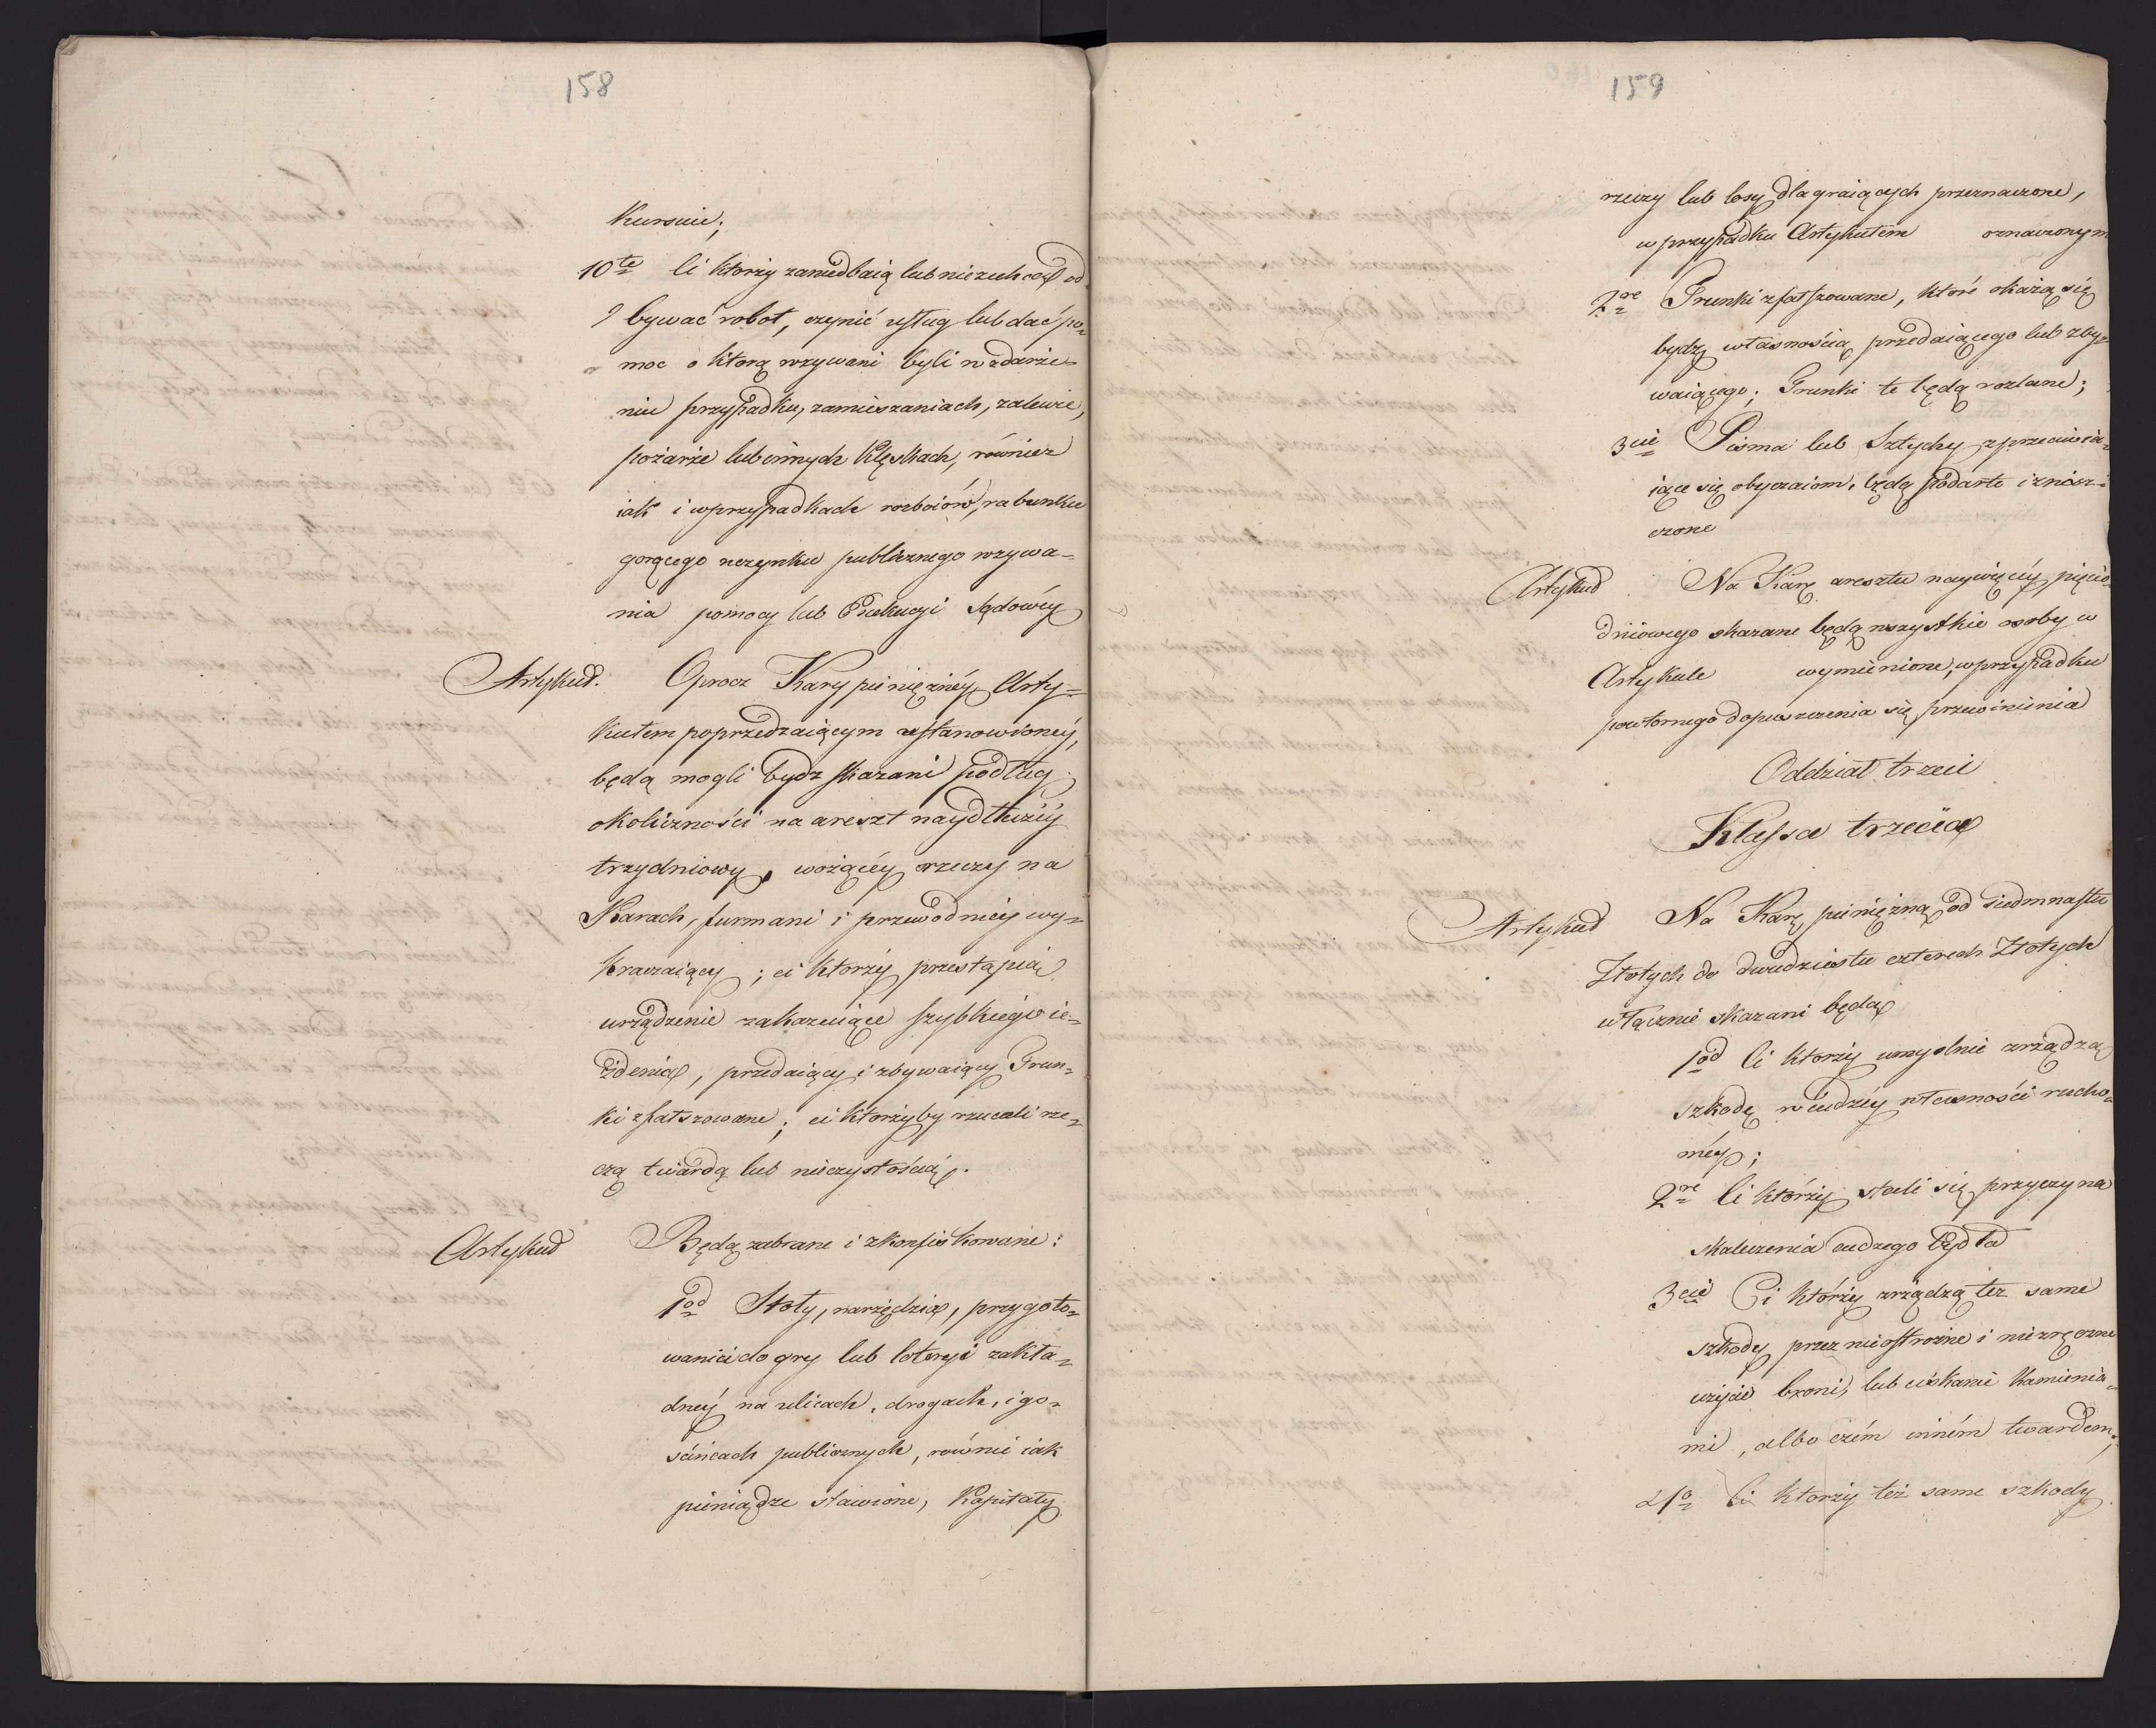 158
kursuie;
10te Ci ktorzy zaniedbaią lub niezechcą od-
bywać robot, czynić usług lub dać po-
moc o ktorą wzywani byli w zdarze-
niu przypadku, zamieszaniach, zalewie,
pożarze lub innych klęskach, również
iak i w przypadkach rozboiów, rabunku
gorącego uczynku publicznego wzywa-
nia pomocy lub Exekucyi Sądowéy
Artykuł. Oprocz Kary pieniężnéy Arty-
kułem poprzedzaiącym ustanowionéy,
będą mogli bydz skazani podług
okoliczności na areszt naydłużéy
trzydniowy, wożącéy rzeczy na
Karach, furmani i przewodnicy wy-
kraczaiący; ci ktorzy przestąpią
urządzenie zakazuiące szybkiego ie-
żdenia, przedaiący i zbywaiący Trun-
ki zfałszowane; ci ktorzyby rzucali rze-
czą twardą lub nieczystością.
Artykuł Będą zabrane i zkonfiskowane:
1od Stoły, narzędzia, przygoto-
wanici do gry lub loteryi zakła-
dnéy na ulicach, drogach, i go-
ścińcach publicznych, równie iak
pieniądze stawione, Kapitały
159
rzeczy lub losy dla graiących przeznaczone,
w przypadku Artykułem oznaczonym
2re Trunki zfałszowane, które okażą się
bydz własnością przedaiącego lub zby-
waiącego; Trunki te będą rozlane;
3cie Pisma lub Sztychy zprzeciwia-
iące się obyczaiom, będą podarte i znisz-
czone
Artykuł Na Karę aresztu naywięcéy pięcio-
dniowego skazane będą wszystkie osoby w
Artykule wymienione, w przypadku
powtornego dopuszczenia się przewinienia
Oddział trzeci
Klassa trzecia
Artykuł Na Karę pieniężną od siedmnastu
Złotych do dwudziestu czterech Złotych
włącznie skazani będą
1od Ci ktorzy umyslnie zrządzą
szkodę w cudzéy własności rucho-
méy;
2re Ci ktorzy stali się przyczyna
skaleczenia cudzego bydła
3cie Ci ktorzy zrządzą też same
szkody przez nieostrożne i niezręczne
użycie broni, lub ciskanie kamienia-
mi, albo czém inném twardem;
4to Ci ktorzy też same szkody